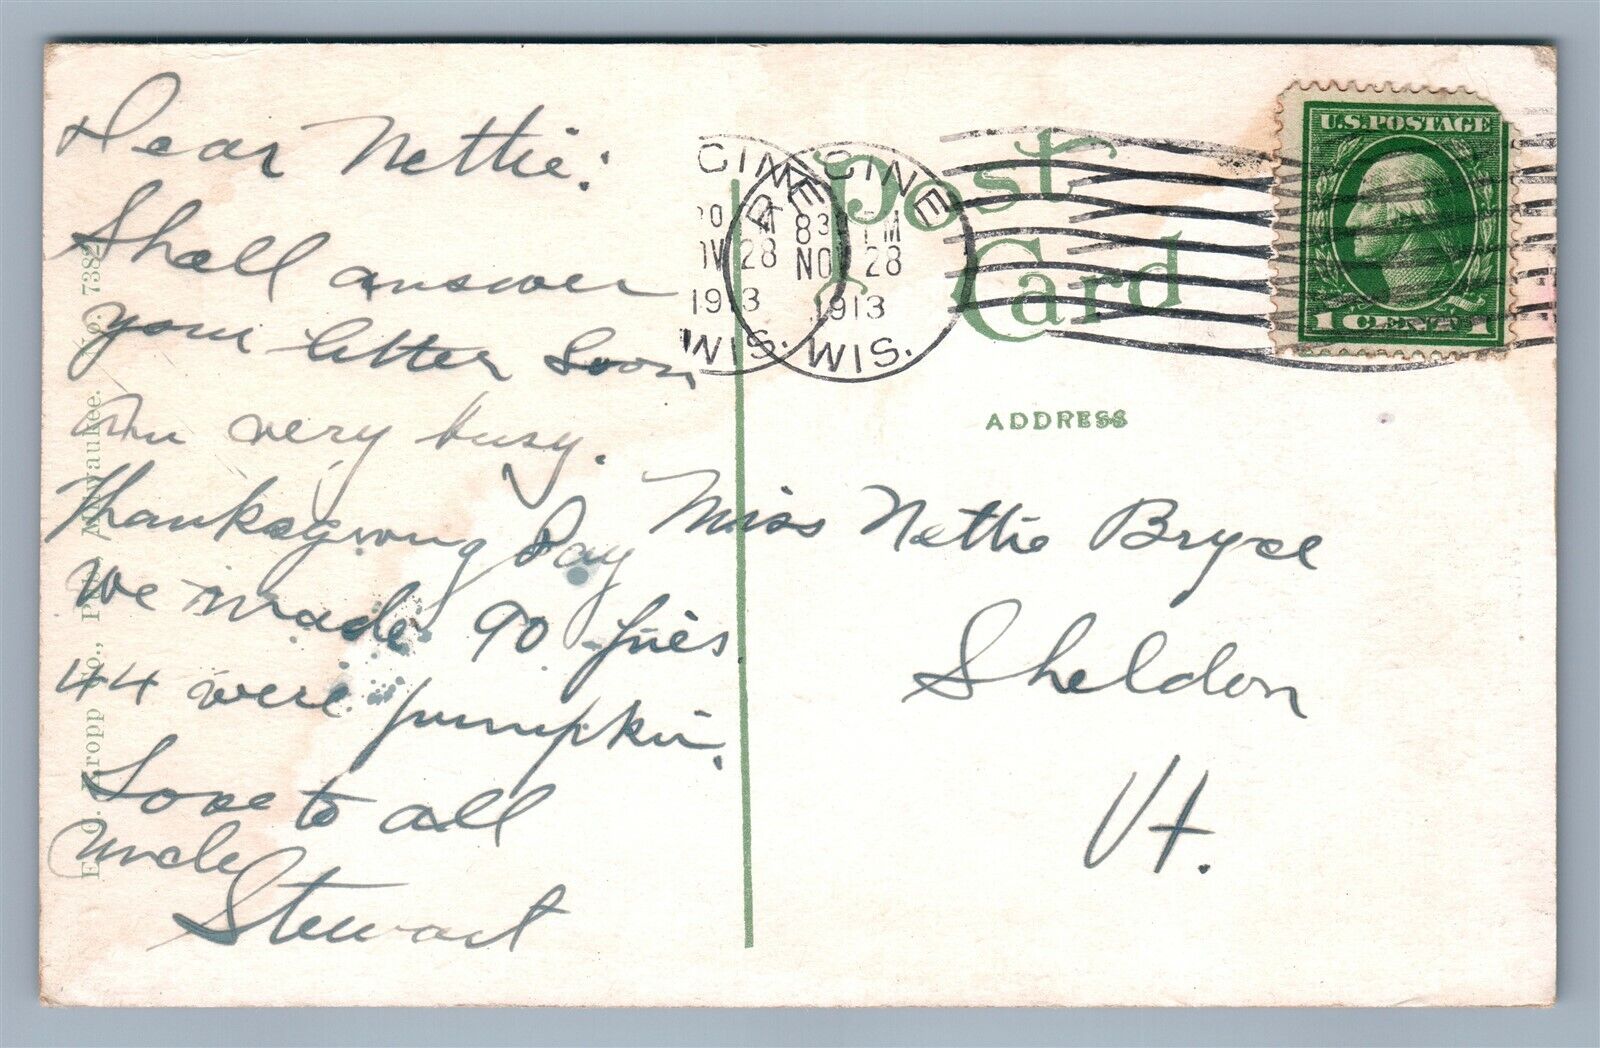 Dear Nettie:
Shall answer
your letter soon
Am very busy.
Thanksgiving Day
We made 90 pies
44 were pumpkin.
Love to all
Uncle
Stewart
E. C. Kropp Co., Pub., Milwaukee. No. 7382
CINE
M
NOV 28
1913
WIS.
RACINE
830 PM
NOV 28
1913
WIS.
Post
Card
U.S. POSTAGE
1 CENT 1
ADDRESS
Miss Nettie Bryce
Sheldon
Vt.